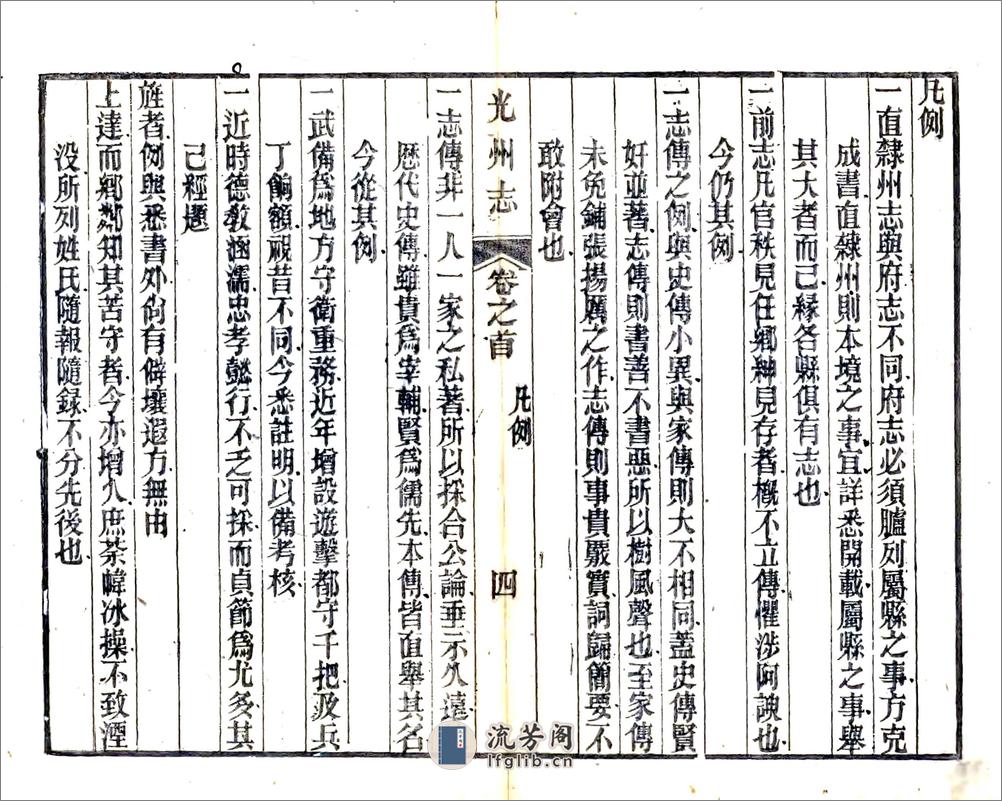 凡例
一直隸州志與府志不同府志必須臚列屬縣之事方克
成書直隸州則本境之事宜詳悉開載屬縣之事舉
其大者而已緣各縣俱有志也
一前志凡官秩見任鄉紳見存者槪不立傳懼涉阿諛也
今仍其例
一志傳之例與史傳小異與家傳則大不相同蓋史傳賢
奸並著志傳則書善不書惡所以樹風聲也至家傳
未免鋪張揚厲之作志傳則事貴嚴實詞歸簡要不
敢附會也
光州志
卷之首
凡例
四
一志傳非一人一家之私著所以採合公論垂示久遠
歷代史傳雖貴爲宰輔賢爲儒先本傳皆直舉其名
今從其例
一武備爲地方守衛重務近年增設遊擊都守千把及兵
丁餉額視昔不同今悉註明以備考核
一近時德教涵濡忠孝懿行不乏可採而貞節爲尤多其
已經題
旌者例與悉書外尙有僻壤遐方無由
上達而鄉鄰知其苦守者今亦增入庶荼幃冰操不致湮
没所列姓氏隨報隨録不分先後也
流芳阁
lfglib.cn